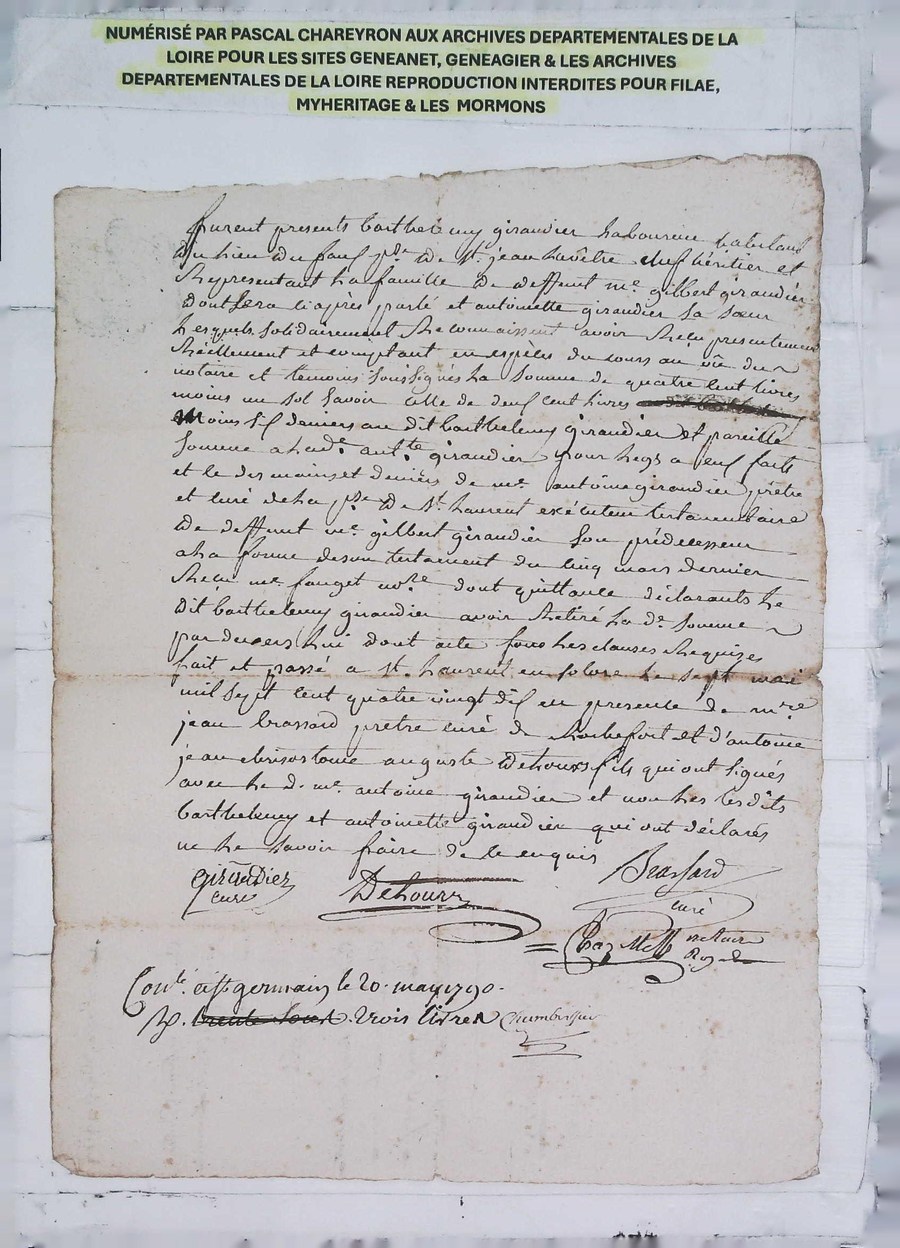 NUMÉRISÉ PAR PASCAL CHAREYRON AUX ARCHIVES DEPARTEMENTALES DE LA
LOIRE POUR LES SITES GENEANET, GENEAGIER & LES ARCHIVES
DEPARTEMENTALES DE LA LOIRE REPRODUCTION INTERDITES POUR FILAE,
MYHERITAGE & LES MORMONS
furent presents barthelemy giraudier laboureur habitant
du lieu du pse de st. jean la vêtre héritier et
representant la famille de deffunt me. gilbert giraudier
dont sera ci après parlé et antoinette giraudier sa sœur
lesquels solidairement reconnaissent avoir recu presentement
réellement et comptant en espèces du cours au vüe du
notaire et temoins soussignés la somme de quatre cent livres
moins un sol savoir celle de deux cent livres
moins six deniers au dit barthelemy giraudier et pareille
somme a la de. antte giraudier pour legs a eux faits
et le des mains et deniers de me. antoine giraudier prêtre
et curé de la pse de st. laurent exécuteur testamentaire
de deffunt me. gilbert giraudier son prédecesseur
a la forme de son testament du cinq mars dernier
recu me fauget nore dont quittance déclarants le
dit barthelemy giraudier avoir retiré la de. somme
par devers lui dont acte sous les clauses requizes
fait et passé a st. laurent en solore le sept mai
mil sept cent quatre vingt dix en presence de mre
jean brassard prêtre curé de rochefort et d'antoine
jean chrisostome auguste dehourx fils qui ont signés
avec le d. me. antoine giraudier et non les lesdits
barthelemy et antoinette giraudier qui ont déclarés
ne le savoir faire de ce enquis
Giraudier
curé
Dehourx
Brassard
curé
notaire
Roy
Conle. a st germain le 20. may 1790.
trois livres